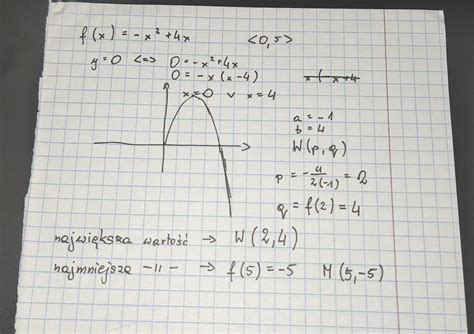 f(x) = -x² + 4x <0,5>
y = 0 <=> 0 = -x² + 4x
0 = -x(x-4)
x = 0 v x = 4
a = -1
b = 4
W(p, q)
p = -4/2(-1) = 2
q = f(2) = 4
największa wartość → W(2,4)
najmniejsza -11- → f(5) = -5 M(5,-5)